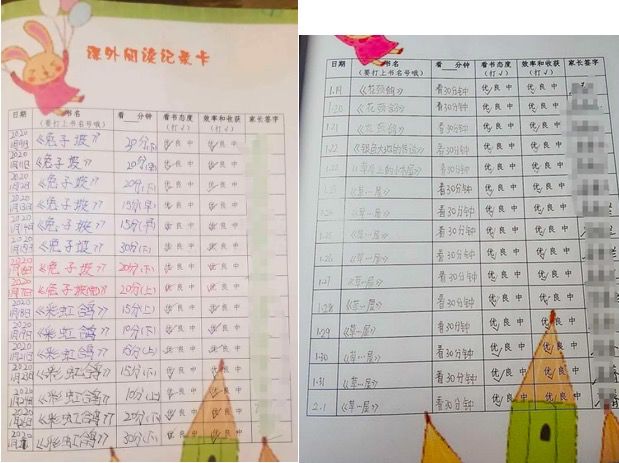 课外阅读记录卡
日期 书名 看 分钟 看书态度 效率和收获 家长签字
(要打上书名号哦) (打√) (打√)
2020 《兔子坡》 20分(下) 优 良 中 优 良 中
2020 《兔子坡》 20分 优 良 中 优 良 中
2020 《兔子坡》 20分(下) 优 良 中 优 良 中
2020 1月13日 《兔子坡》 15分 优 良 中 优 良 中
2020 1月14日 《兔子坡》 15分 优 良 中 优 良 中
2020 1月15日 《兔子坡》 30分(下) 优 良 中 优 良 中
2020 《兔子坡》 20分(下) 优 良 中 优 良 中
2020 《兔子坡 》 20分(上) 优 良 中 优 良 中
2020 《彩虹鸽》 15分(上) 优 良 中 优 良 中
2020 《彩虹鸽》 10分(下) 优 良 中 优 良 中
2020 1月21日 《彩虹鸽》 15分(上) 优 良 中 优 良 中
2020 1月23日 《彩虹鸽》 15分(下) 优 良 中 优 良 中
2020 《彩虹鸽》 10分(上) 优 良 中 优 良 中
2020 《彩虹鸽》 20分(下) 优 良 中 优 良 中
2020 《彩虹鸽》 30分(下) 优 良 中 优 良 中
日期 书名 看 分钟 看书态度 效率和收获 家长签字
(要打上书名号哦) (打√) (打√)
1.19 《花颈鸽》 看30分钟 优 良 中 优 良 中
1.20 《花颈鸽》 看30分钟 优 良 中 优 良 中
1.21 《花颈鸽》 看30分钟 优 良 中 优 良 中
1.22 《银色大地的传说》 看30分钟 优 良 中 优 良 中
《草原上的小木屋》 看30分钟 优 良 中 优 良 中
1.25 《草···屋》 看30分钟 优 良 中 优 良 中
1.26 《草···屋》 看30分钟 优 良 中 优 良 中
《草···屋》 看30分钟 优 良 中 优 良 中
1.26 《草···屋》 看30分钟 优 良 中 优 良 中
1.27 《草···屋》 看30分钟 优 良 中 优 良 中
1.28 《草···屋》 看30分钟 优 良 中 优 良 中
1.29 《草···屋》 看30分钟 优 良 中 优 良 中
1.30 《草···屋》 看30分钟 优 良 中 优 良 中
1.31 《草···屋》 看30分钟 优 良 中 优 良 中
2.1 《草···屋》 看30分钟 优 良 中 优 良 中